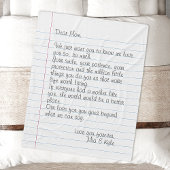 Dear Mom,
We just want you to know we love
you so, so much.
Your smile, your patience, your
protection and the million little
things you do for us that make
life worth living.
If everyone had a mother like
you, the world would be a better
place.
Our love for you goes beyond
what we can say.
Love you forever,
Kyle